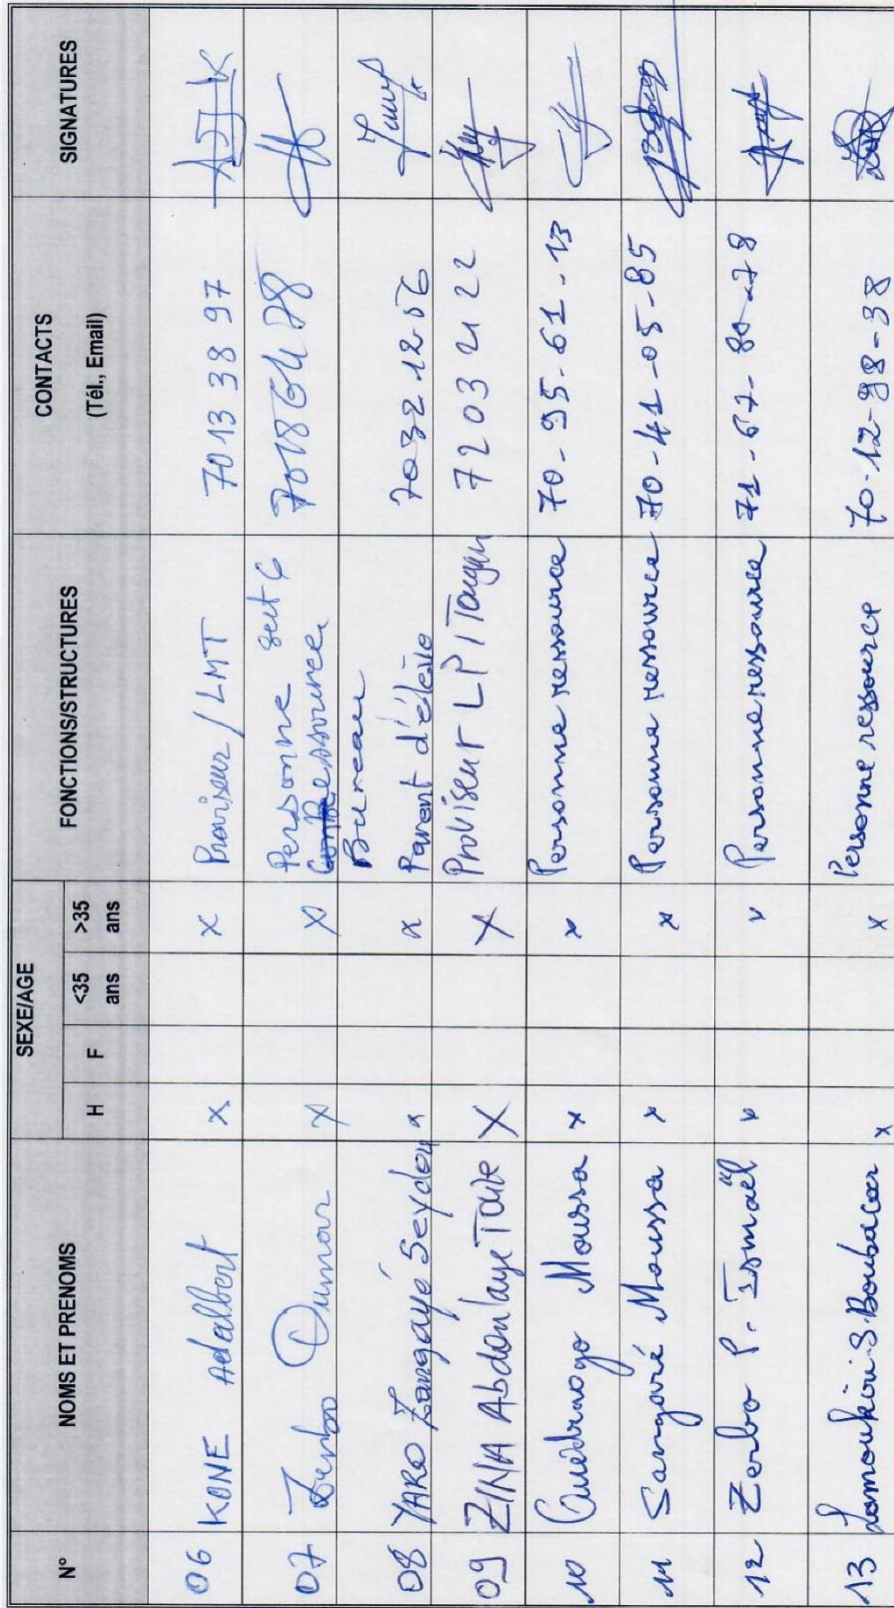 N° NOMS ET PRENOMS SEXE/AGE FONCTIONS/STRUCTURES CONTACTS (Tél., Email) SIGNATURES
H F <35 ans >35 ans
06 KONE Adalbert x x Proviseur/LMT 70 13 38 97
07 Zerbo Oumar x x Personne Ressource 70186478
Bureau
08 YARO Zangayé Seydou x x Parent d'élève 7032.12.56
09 ZINA Abdoulaye Taibe X X Proviseur LP/Tougan 7203 21 22
10 Ouédraogo Moussa x x Personne ressource 70-95-61-13
11 Sangaré Moussa x x Personne ressource 70-41-05-85
12 Zerbo P. Ismaël x x Personne ressource 71-67-80-78
13 S. Boubacar x x Personne ressource 70-12-98-38